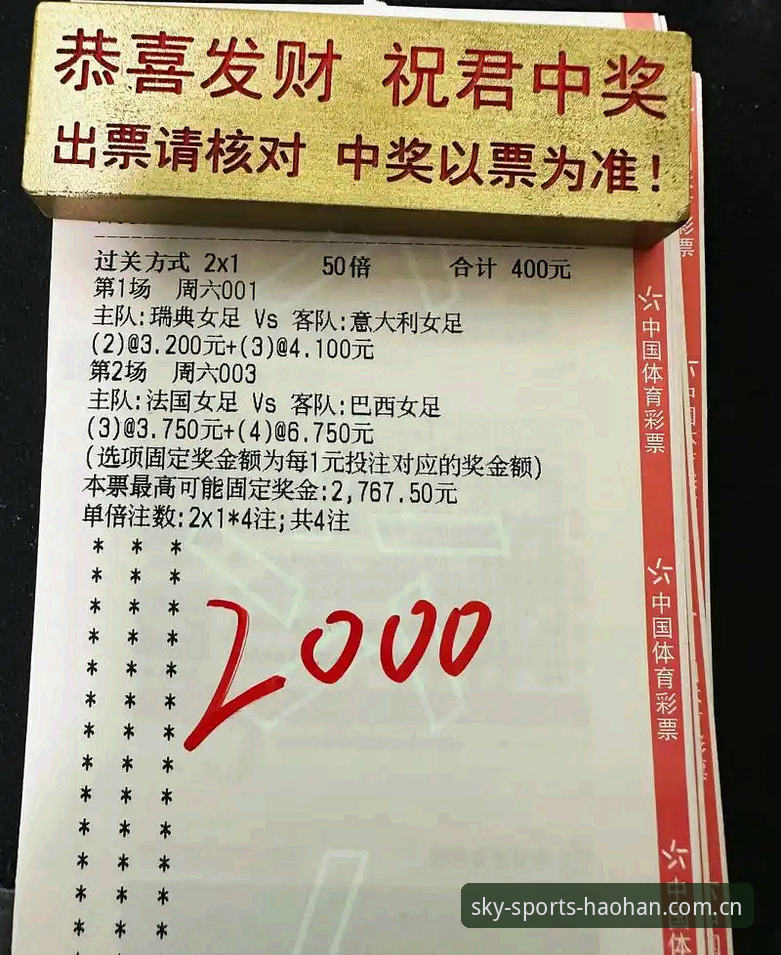 恭喜发财 祝君中奖
出票请核对 中奖以票为准!
过关方式 2x1 50倍 合计 400元
第1场 周六001
主队:瑞典女足 Vs 客队:意大利女足
(2)@3.200元+(3)@4.100元
第2场 周六003
主队:法国女足 Vs 客队:巴西女足
(3)@3.750元+(4)@6.750元
(选项固定奖金额为每1元投注对应的奖金额)
本票最高可能固定奖金:2,767.50元
单倍注数:2x1*4注;共4注
* * *
* * *
* * *
* * *
* * *
* * *
* * *
* * *
* * *
* * *
* * *
* * *
* * *
2000
中国体育彩票
中国体育彩票
中国体
彩票
sky-sports-haohan.com.cn